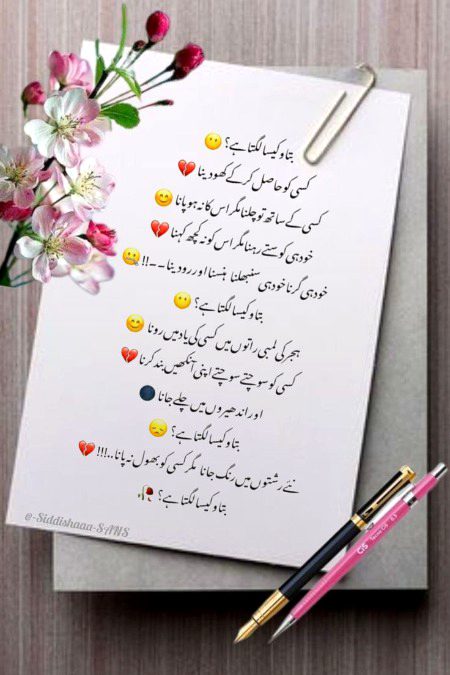 بتاو کیسا لگتا ہے؟ 😶
کسی کو حاصل کر کے کھو دینا 💔
کسی کے ساتھ تو چلنا مگر اس کا نہ ہو پانا 😊
خود ہی کو ستے رہنا مگر اس کو نہ کچھ کہنا 💔
خود ہی گرنا خود ہی سنبھلنا ہنسنا اور رو دینا --!! 🤐
بتاو کیسا لگتا ہے؟ 😶
ہجر کی لمبی راتوں میں کسی کی یاد میں رونا 😊
کسی کو سوچتے سوچتے اپنی آنکھیں بند کرنا 💔
اور اندھیروں میں چلے جانا 🌑
بتاو کیسا لگتا ہے؟ 😞
نئے رشتوں میں رنگ جانا مگر کسی کو بھول نہ پانا..!!! 💔
بتاو کیسا لگتا ہے؟ 🥀
@-Siddishaaa-SANS
CiS